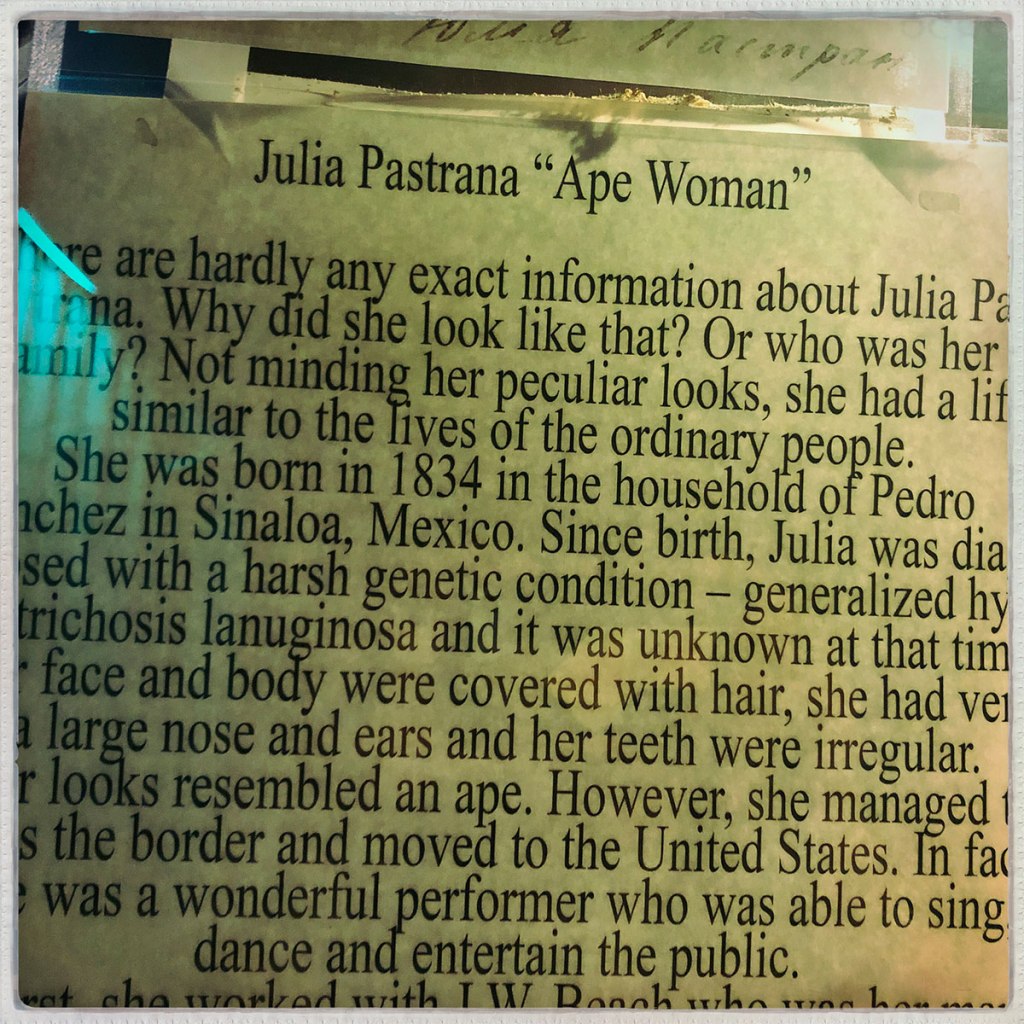 Julia Pastrana “Ape Woman”
are hardly any exact information about Julia Pa
rana. Why did she look like that? Or who was her
amily? Not minding her peculiar looks, she had a lif
similar to the lives of the ordinary people.
She was born in 1834 in the household of Pedro
nchez in Sinaloa, Mexico. Since birth, Julia was dia
sed with a harsh genetic condition – generalized hy
trichosis lanuginosa and it was unknown at that tim
r face and body were covered with hair, she had ver
a large nose and ears and her teeth were irregular.
r looks resembled an ape. However, she managed t
s the border and moved to the United States. In fac
e was a wonderful performer who was able to sing,
dance and entertain the public.
she worked with J.W. Beach who was her